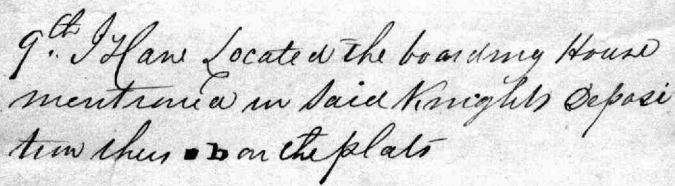 9th. I Have Located the boarding House
mentioned in Said Knights Deposi
tion thus ▪ b on the plats